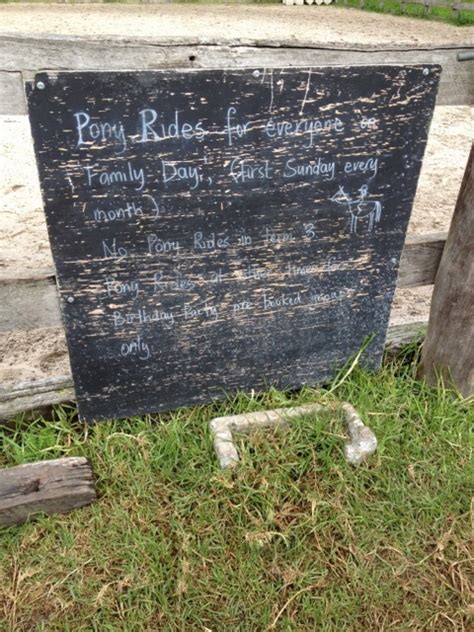 Pony Rides for everyone on
'Family Day', (first Sunday every
month)
No Pony Rides in term 3
Pony Rides at other times for
Birthday Party pre booked groups
only.